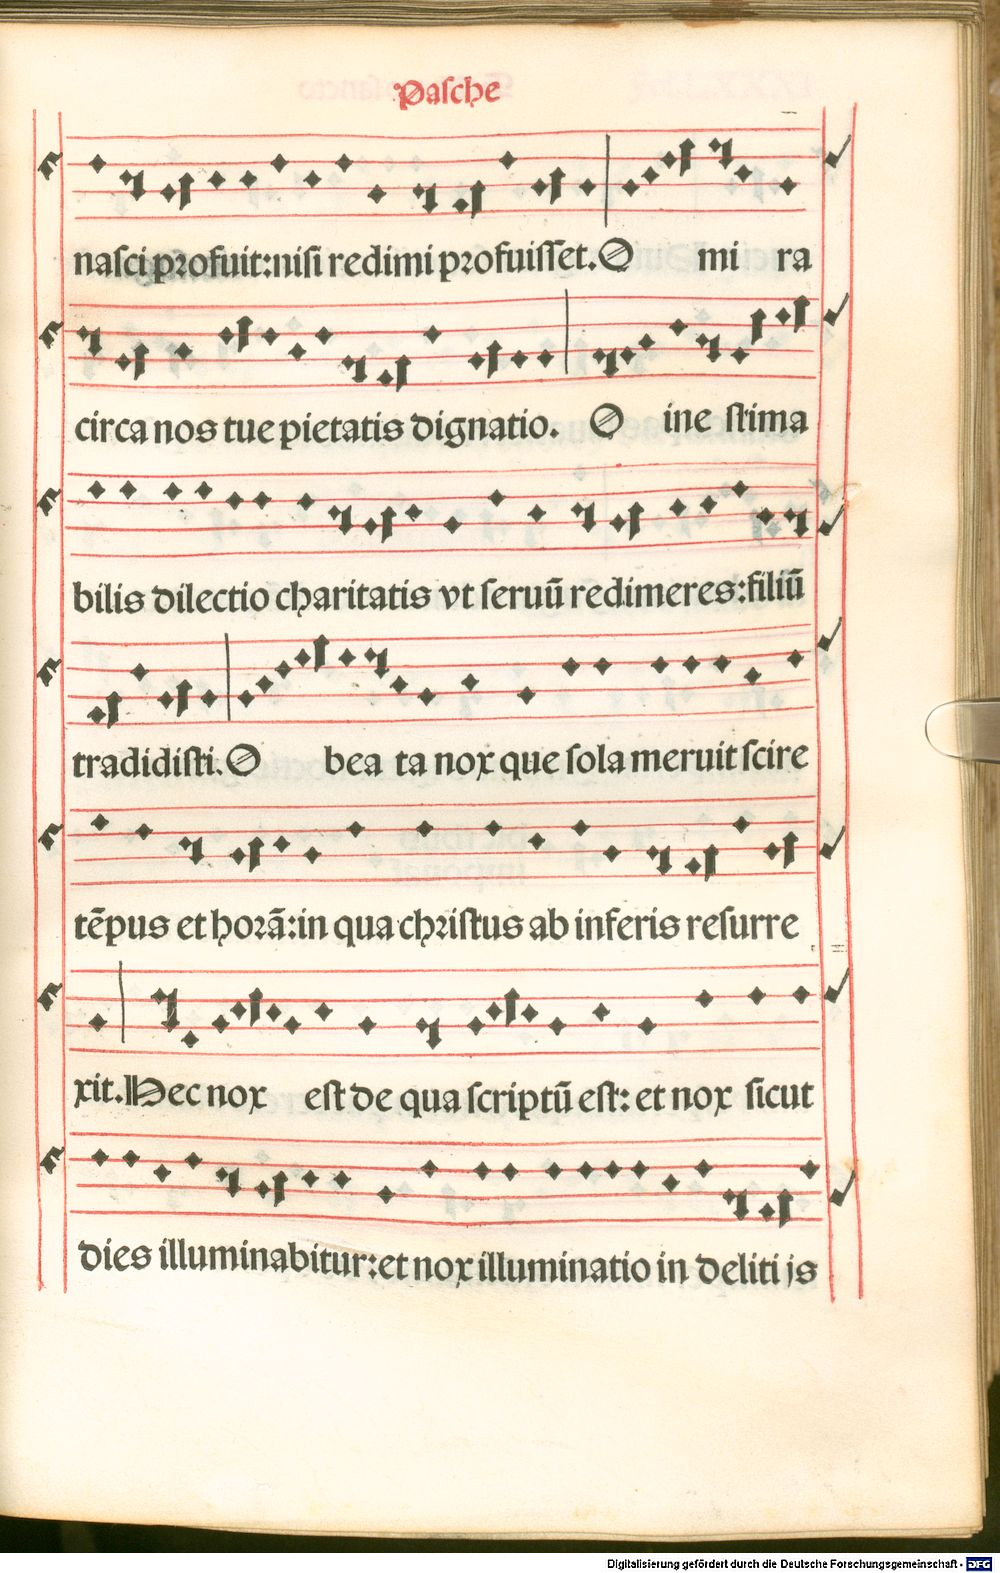 Pasche
nasci profuit:nisi redimi profuisset.O mi ra
circa nos tue pietatis dignatio. O ine stima
bilis dilectio charitatis vt seruū redimeres:filiū
tradidisti.O bea ta nox que sola meruit scire
tēpus et horā:in qua christus ab inferis resurre
xit.Hec nox est de qua scriptū est: et nox sicut
dies illuminabitur:et nox illuminatio in deliti js
Digitalisierung gefördert durch die Deutsche Forschungsgemeinschaft - DFG